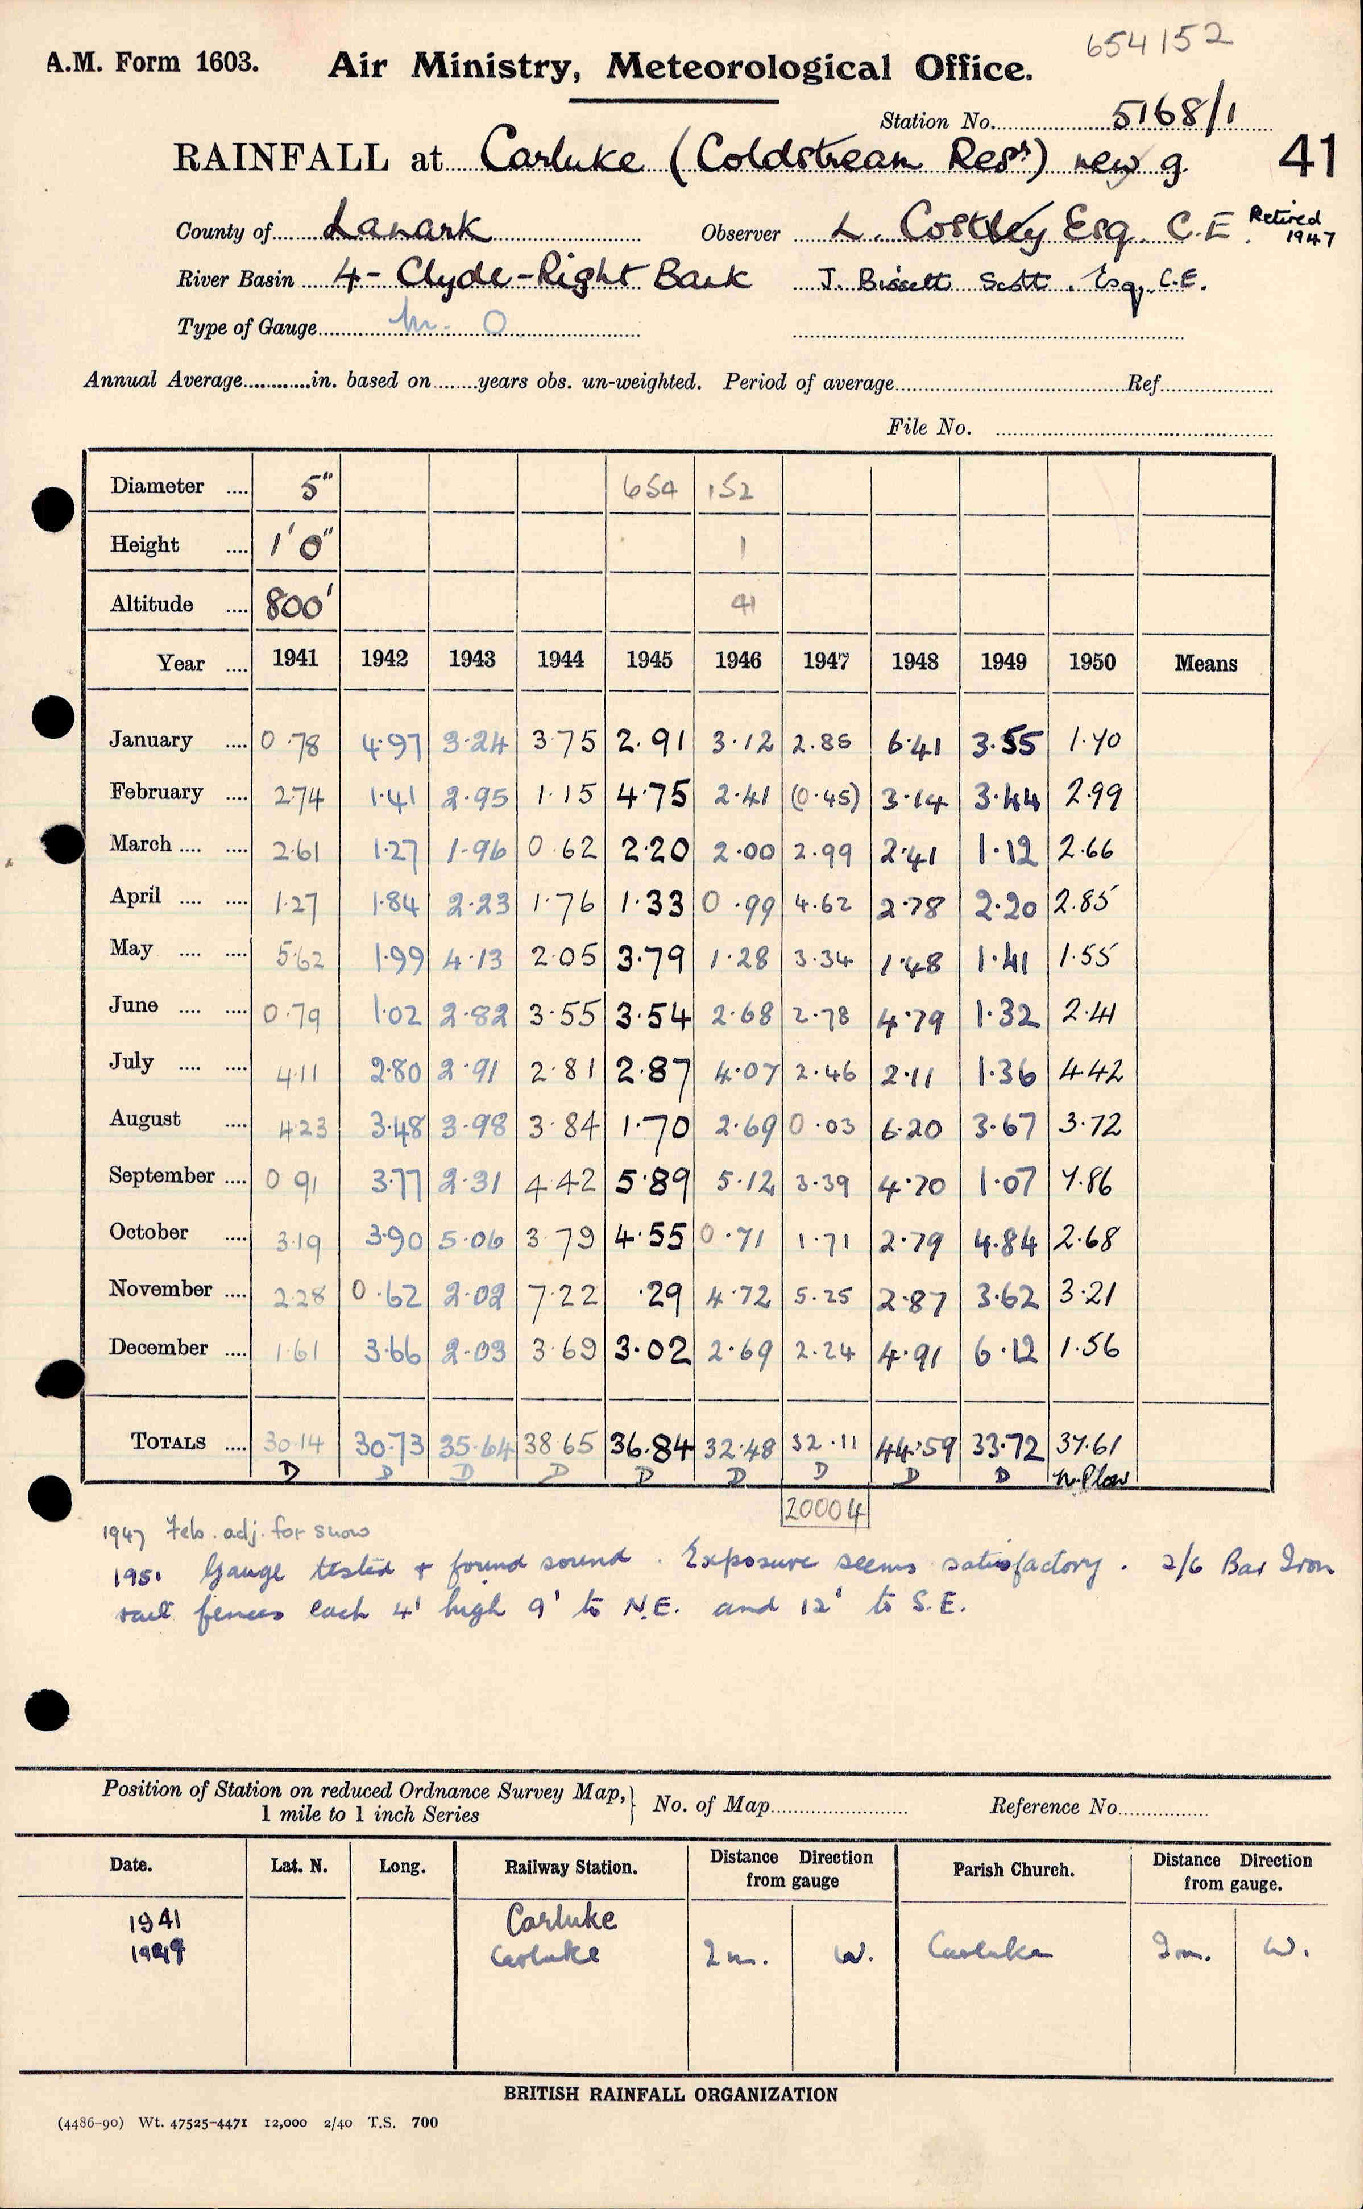 654152
A.M. Form 1603. Air Ministry, Meteorological Office.
Station No. 5168/1
RAINFALL at Carluke (Coldstream Resr) new g. 41
County of Lanark Observer L. Costley Esq. C.E. Retired 1947
River Basin 4 - Clyde - Right Bank J. Bissett Scott. Esq, C.E.
Type of Gauge M. O
Annual Average in. based on years obs. un-weighted. Period of average Ref
File No.
Diameter 5" 654 152
Height 1' 0" 1
Altitude 800' 41
Year 1941 1942 1943 1944 1945 1946 1947 1948 1949 1950 Means
January 0.78 4.97 3.24 3.75 2.91 3.12 2.85 6.41 3.55 1.70
February 2.74 1.41 2.95 1.15 4.75 2.41 (0.45) 3.14 3.44 2.99
March 2.61 1.27 1.96 0.62 2.20 2.00 2.99 2.41 1.12 2.66
April 1.27 1.84 2.23 1.76 1.33 0.99 4.62 2.78 2.20 2.85
May 5.62 1.99 4.13 2.05 3.79 1.28 3.34 1.48 1.41 1.55
June 0.79 1.02 2.82 3.55 3.54 2.68 2.78 4.79 1.32 2.41
July 4.11 2.80 2.91 2.81 2.87 4.07 2.46 2.11 1.36 4.42
August 4.23 3.48 3.98 3.84 1.70 2.69 0.03 6.20 3.67 3.72
September 0.91 3.77 2.31 4.42 5.89 5.12 3.39 4.70 1.07 7.86
October 3.19 3.90 5.06 3.79 4.55 0.71 1.71 2.79 4.84 2.68
November 2.28 0.62 2.02 7.22 .29 4.72 5.25 2.87 3.62 3.21
December 1.61 3.66 2.03 3.69 3.02 2.69 2.24 4.91 6.12 1.56
TOTALS 30.14 30.73 35.64 38.65 36.84 32.48 32.11 44.59 33.72 37.61
D D D D D D D D D
20004
1947 Feb. adj. for snow
1951 Gauge tested + found sound. Exposure seems satisfactory. 2/6 Bar Iron
rail fences each 4' high 9' to N.E. and 12' to S.E.
Position of Station on reduced Ordnance Survey Map, } No. of Map Reference No.
1 mile to 1 inch Series
Date. Lat. N. Long. Railway Station. Distance Direction from gauge Parish Church. Distance Direction from gauge.
1941 Carluke
1949 Carluke 2m. W. Carluke 2m. W.
BRITISH RAINFALL ORGANIZATION
(4486-90) Wt. 47525-4471 12,000 2/40 T.S. 700